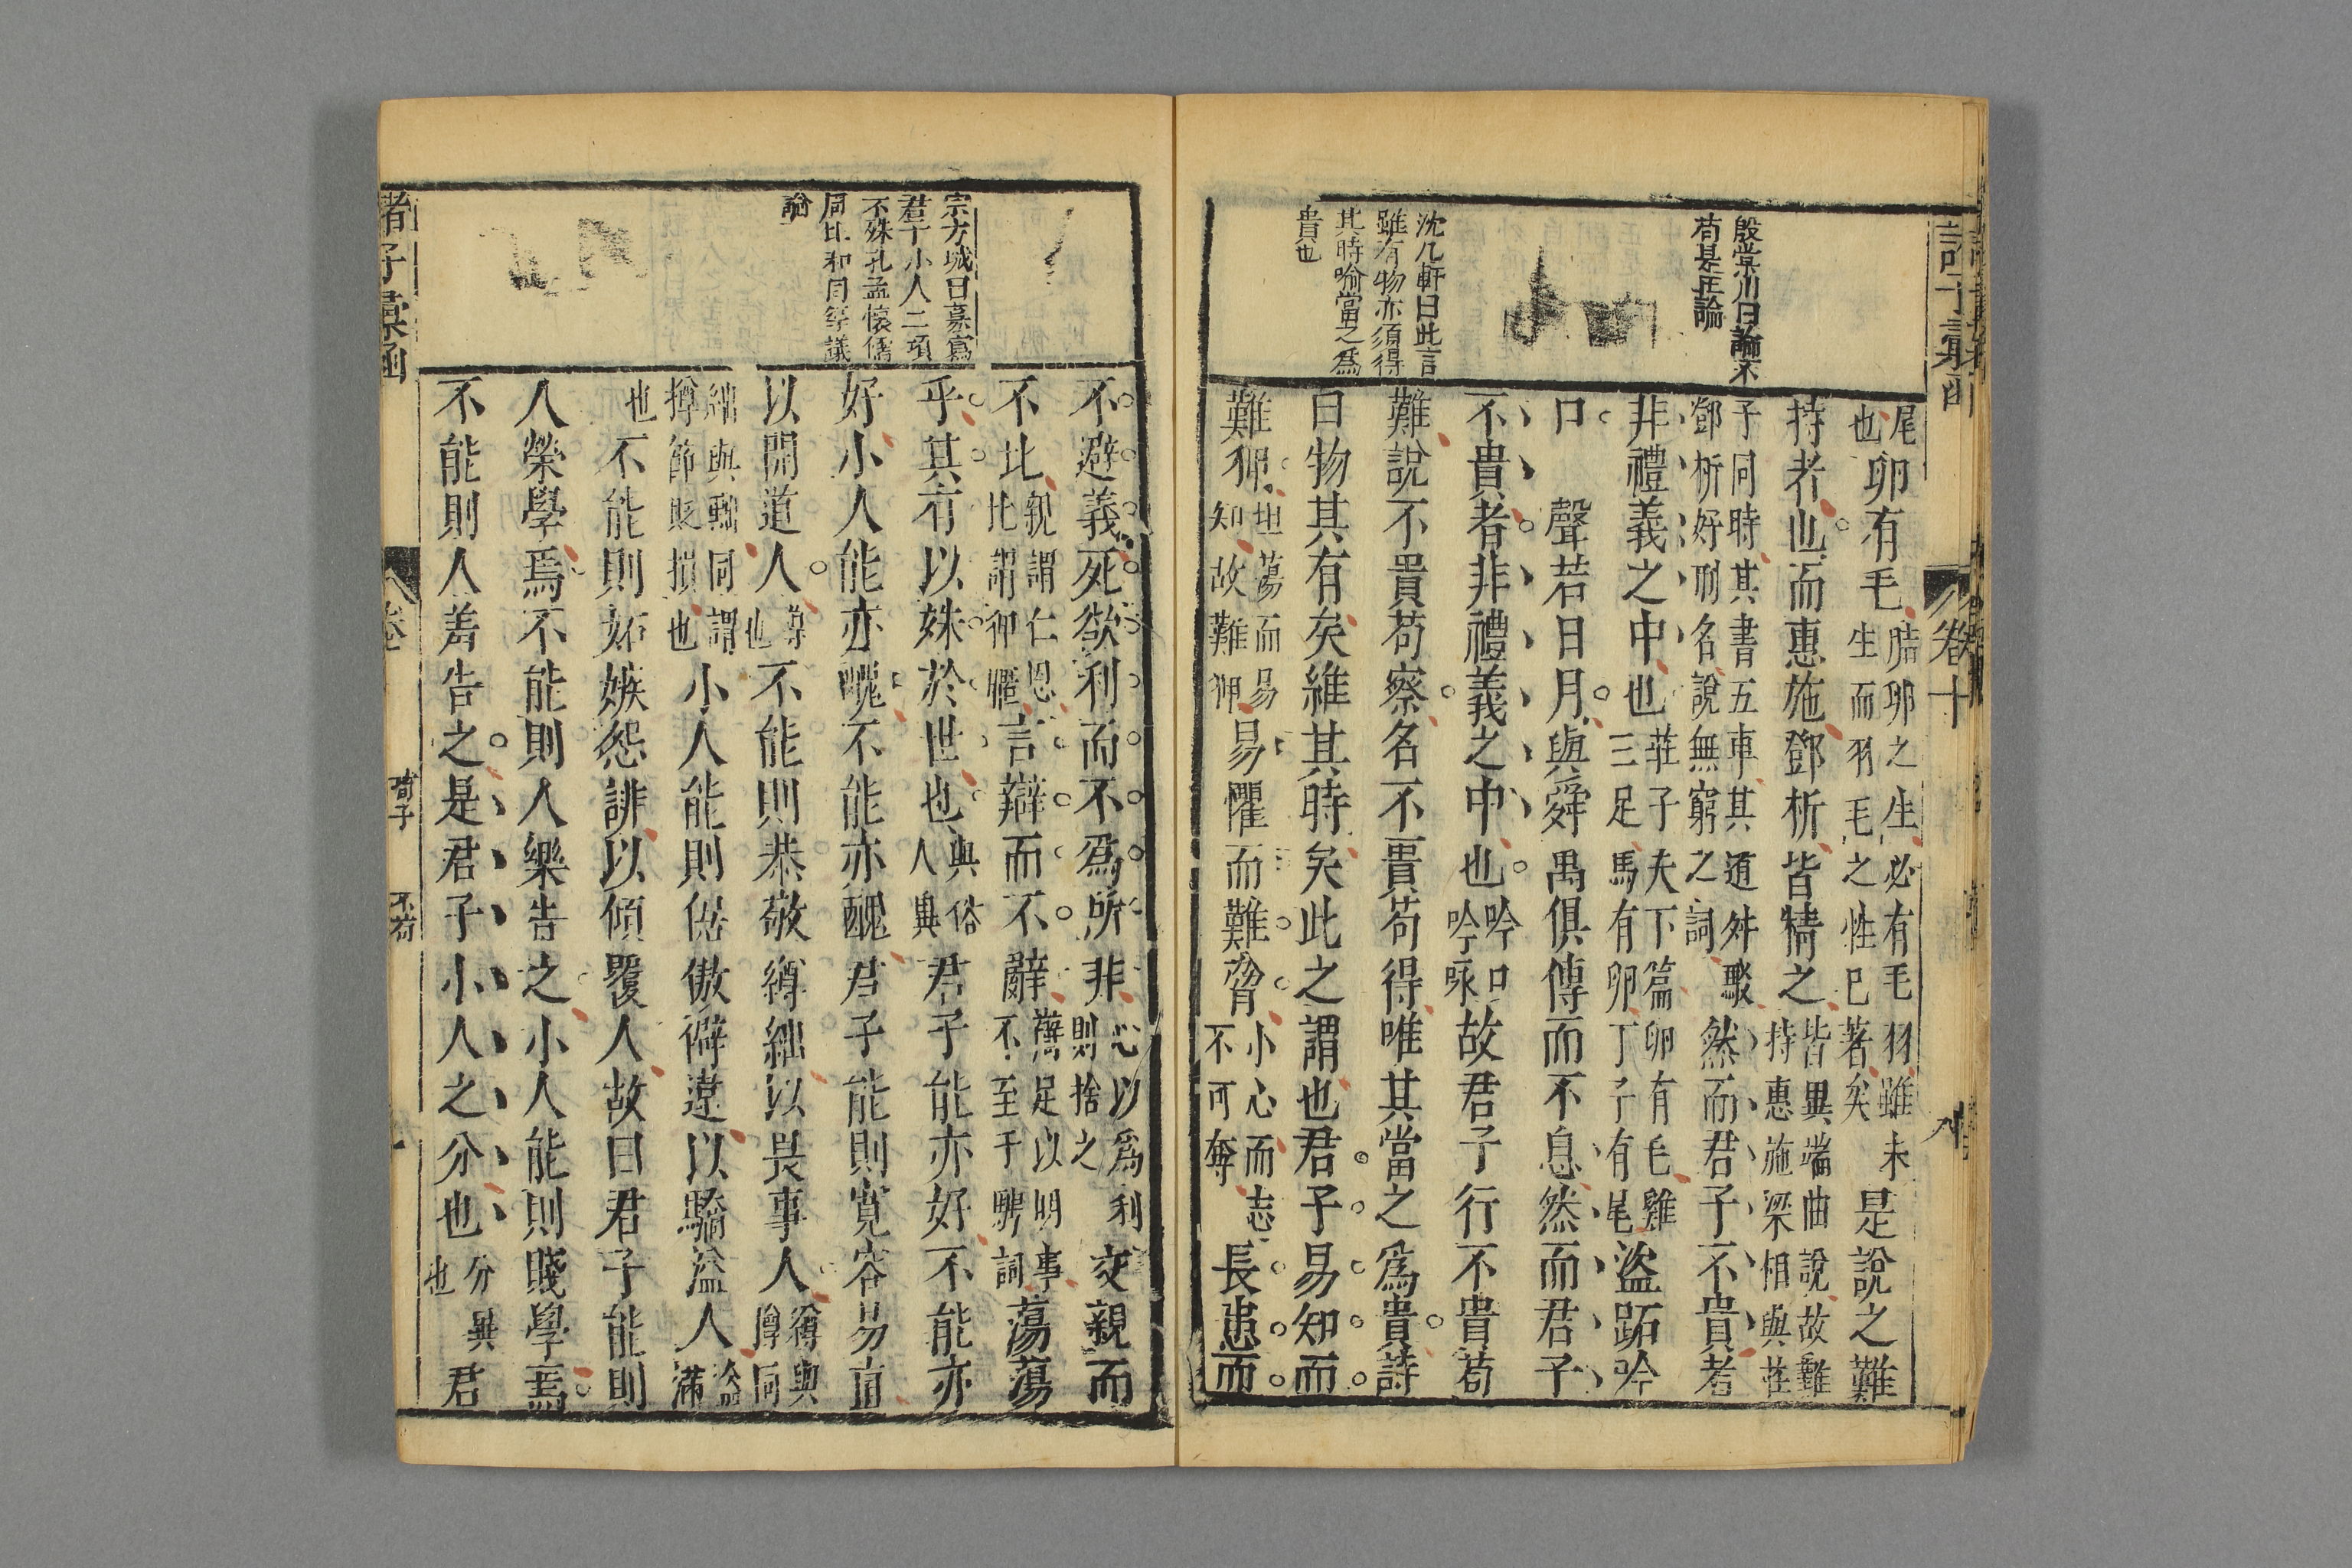 殷棠川曰論不
苟是正論
沈几軒曰此言
雖有物亦須得
其時喻當之為
貴也
尾也卵有毛胎卵之生必有毛羽雖未生而羽毛之性已著矣是說之難
持者也而惠施鄧析皆精之皆異端曲說故難持惠施梁相與莊
子同時其書五車其道舛駁鄧析好刑名說無窮之詞然而君子不貴者
非禮義之中也莊子天下篇卵有毛雞三足馬有卵丁子有尾盜跖吟
口聲若日月與舜禹俱傳而不息然而君子
不貴者非禮義之中也吟口吟咏故君子行不貴苟
難說不貴苟察名不貴苟得唯其當之爲貴詩
曰物其有矣維其時矣此之謂也君子易知而
難狎坦蕩而易知故難狎易懼而難脅小心而志不可奪長患而
卷十
宗方城曰摹寫
君子小人二項
不殊孔孟懷儒
周比和同等議
論
不避義死欲利而不爲所非心以爲利則捨之交親而
不比親謂仁恩比謂狎暱言辯而不辭辯足以明事不至于騁詞蕩蕩
乎其有以殊於世也與俗人異君子能亦好不能亦
好小人能亦醜不能亦醜君子能則寬容易直
以開道人導也不能則恭敬繜絀以畏事人繜與撙同
絀與黜同謂撙節貶損也小人能則倨傲僻違以驕溢人溢滿
也不能則妬嫉怨誹以傾覆人故曰君子能則
人榮學焉不能則人樂告之小人能則賤學焉
不能則人羞告之是君子小人之分也分異也君
諸子彙函
卷
荀子
不苟